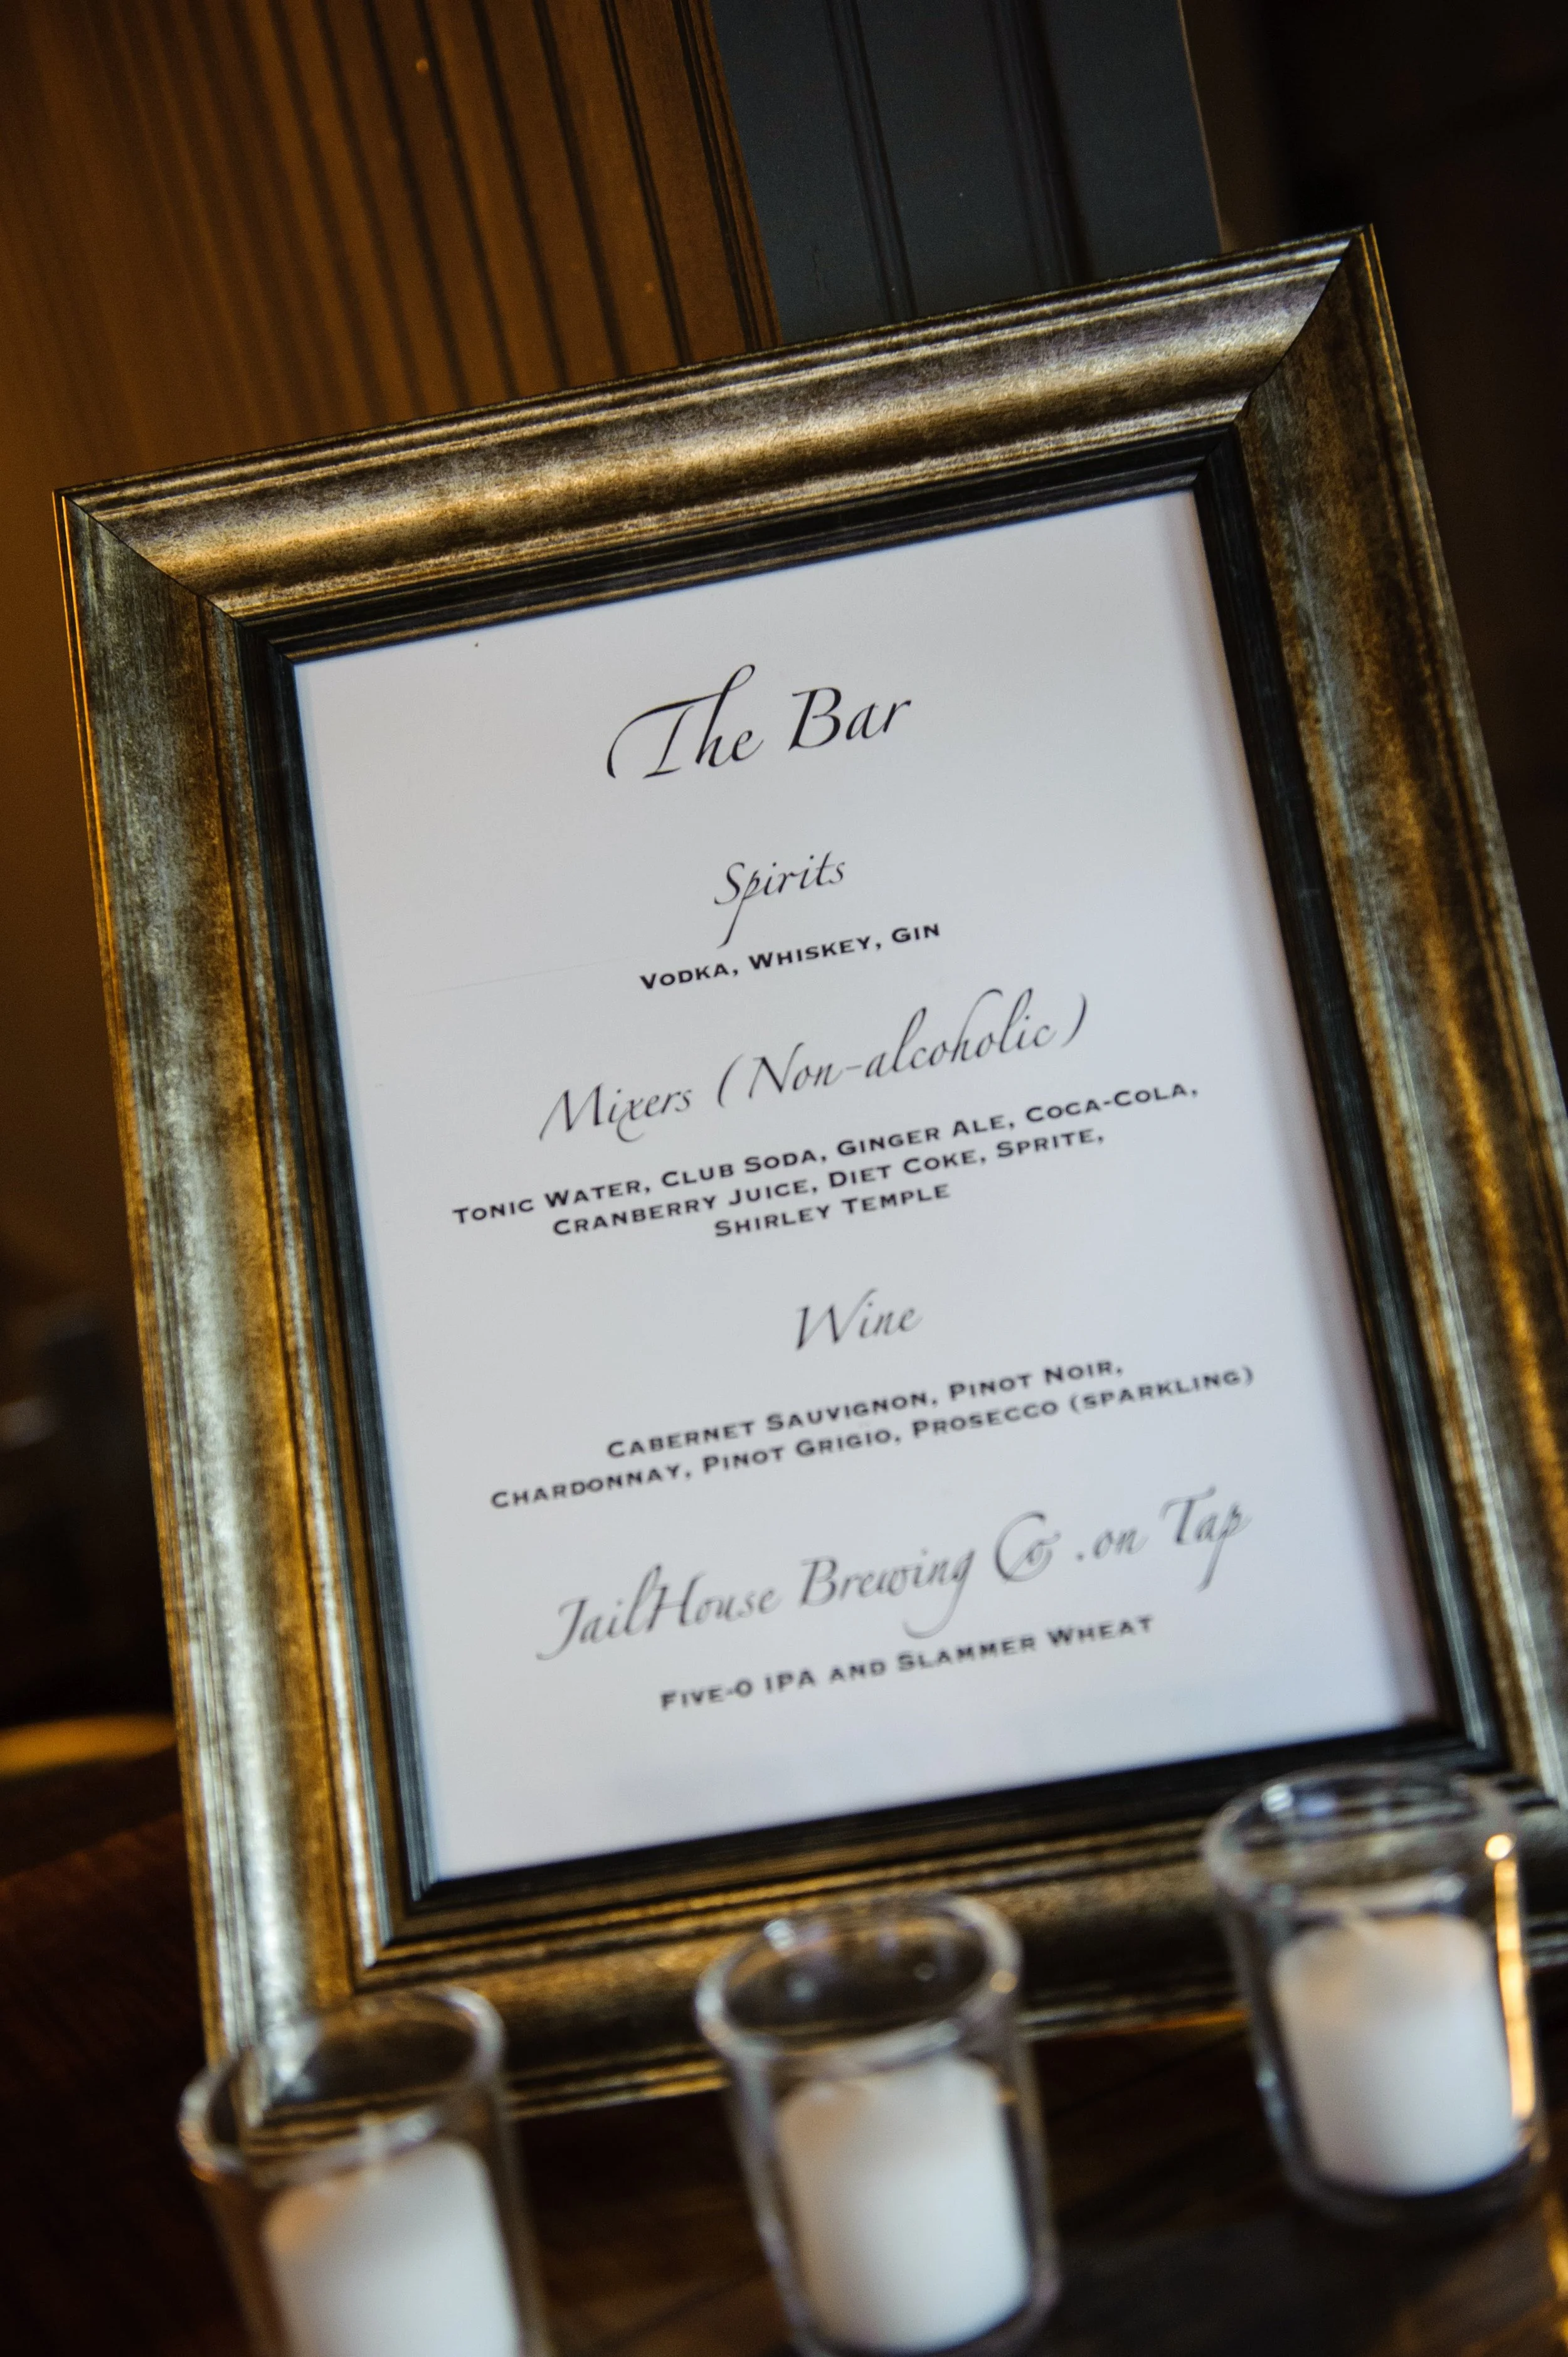 The Bar
Spirits
Vodka, Whiskey, Gin
Mixers (Non-alcoholic)
Tonic Water, Club Soda, Ginger Ale, Coca-Cola,
Cranberry Juice, Diet Coke, Sprite,
Shirley Temple
Wine
Cabernet Sauvignon, Pinot Noir,
Chardonnay, Pinot Grigio, Prosecco (sparkling)
JailHouse Brewing Co .on Tap
Five-0 IPA and Slammer Wheat